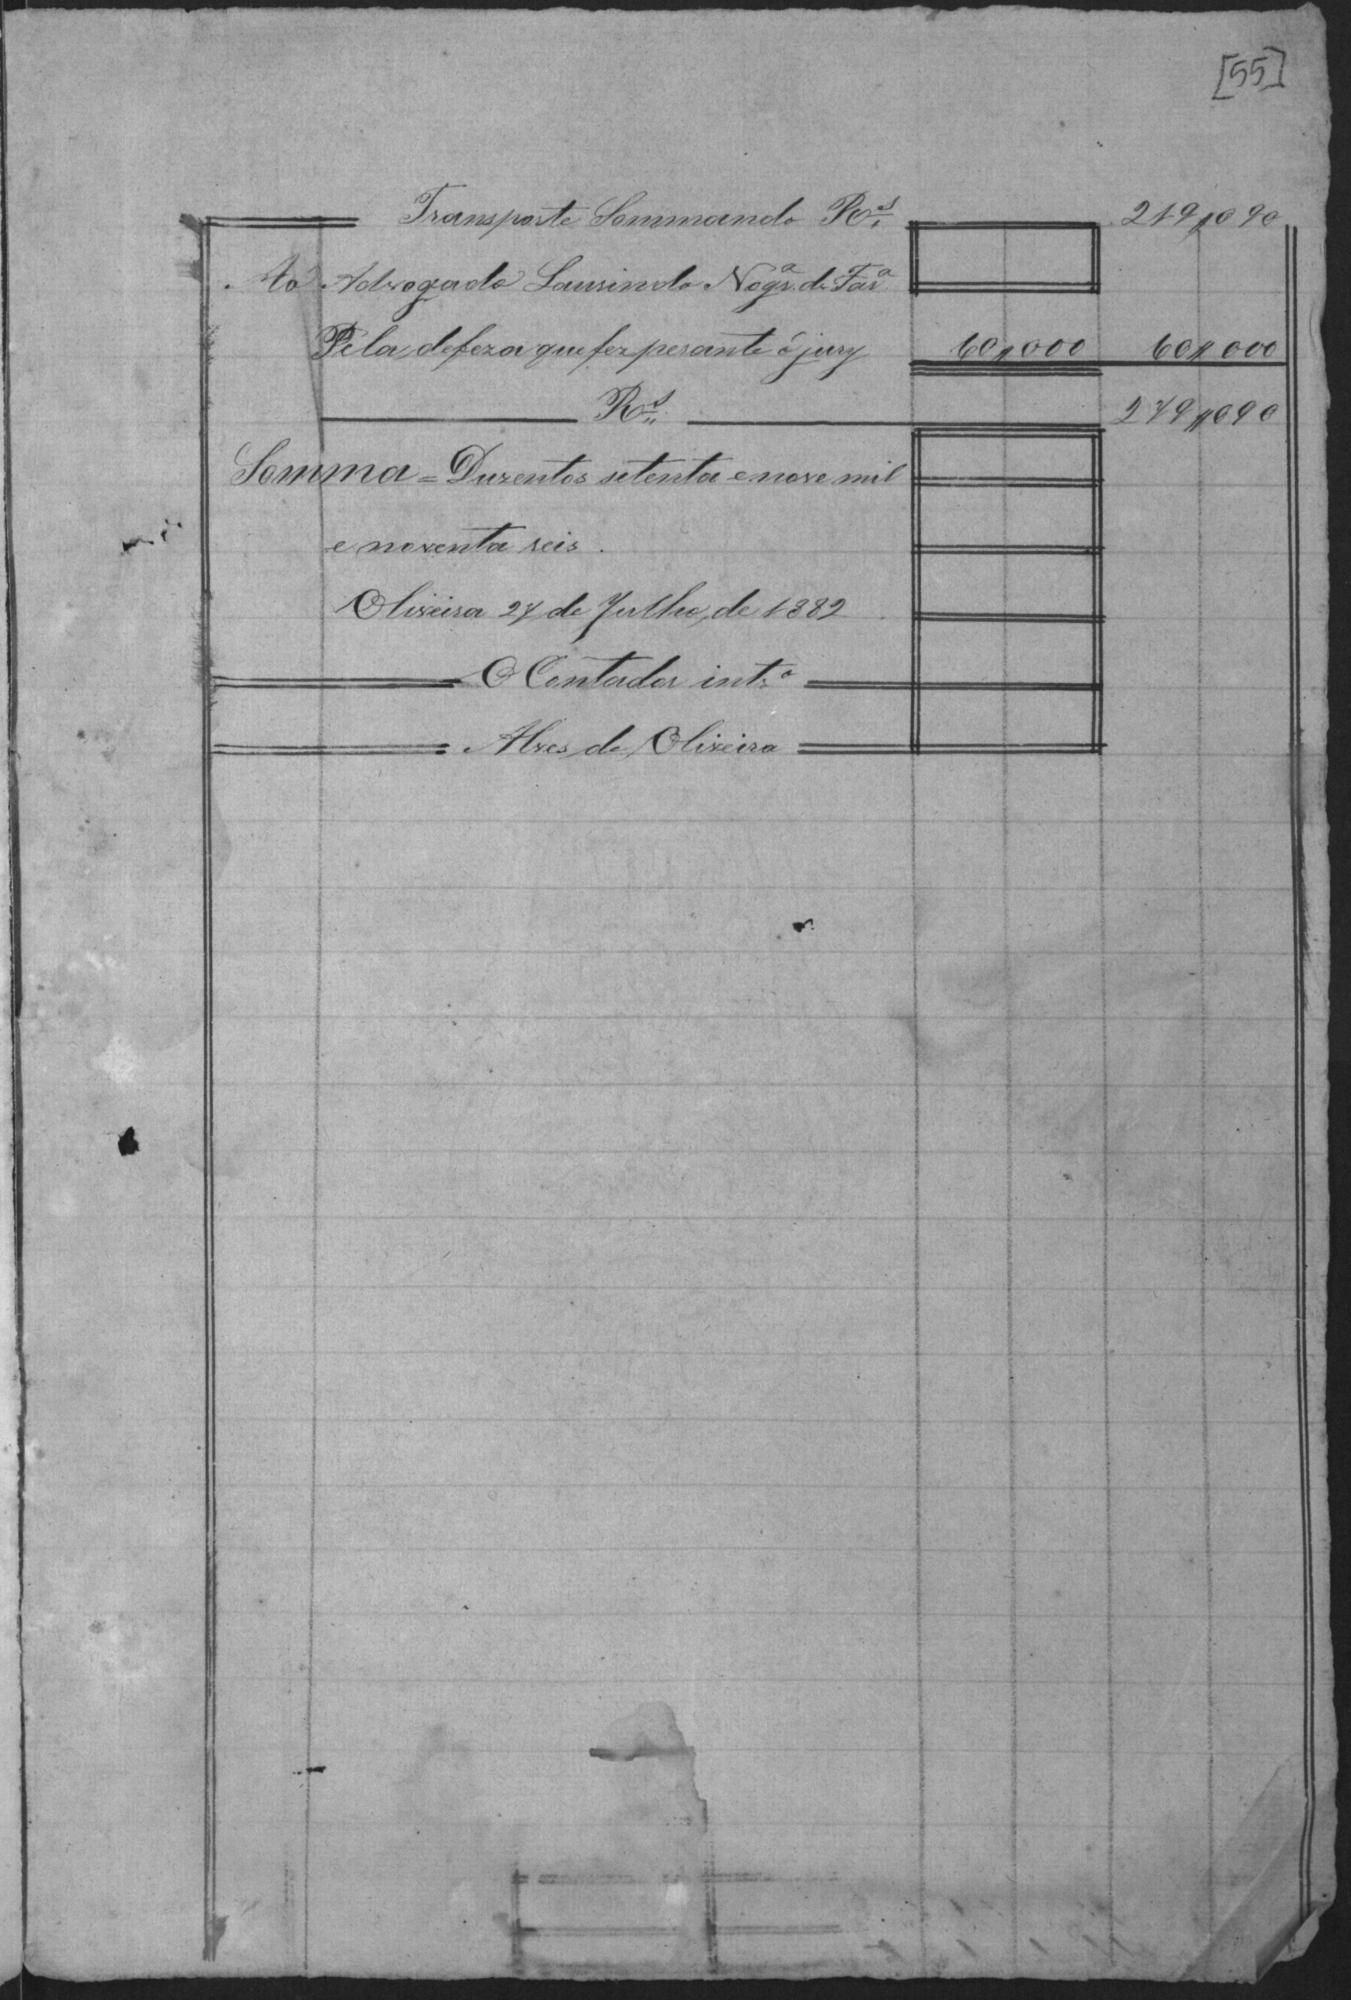 [55]
Transporte Sommando Rs. 219,,090
Ao Advogado Laurindo Nogra. de Fara
Pela defeza que fez perante o jury 60,,000 60,,000
Rs. 279,,090
Somma = Duzentos setenta e nove mil
e noventa reis.
Oliveira 27 de Julho, de 1882
O Contador into
Alves de Oliveira